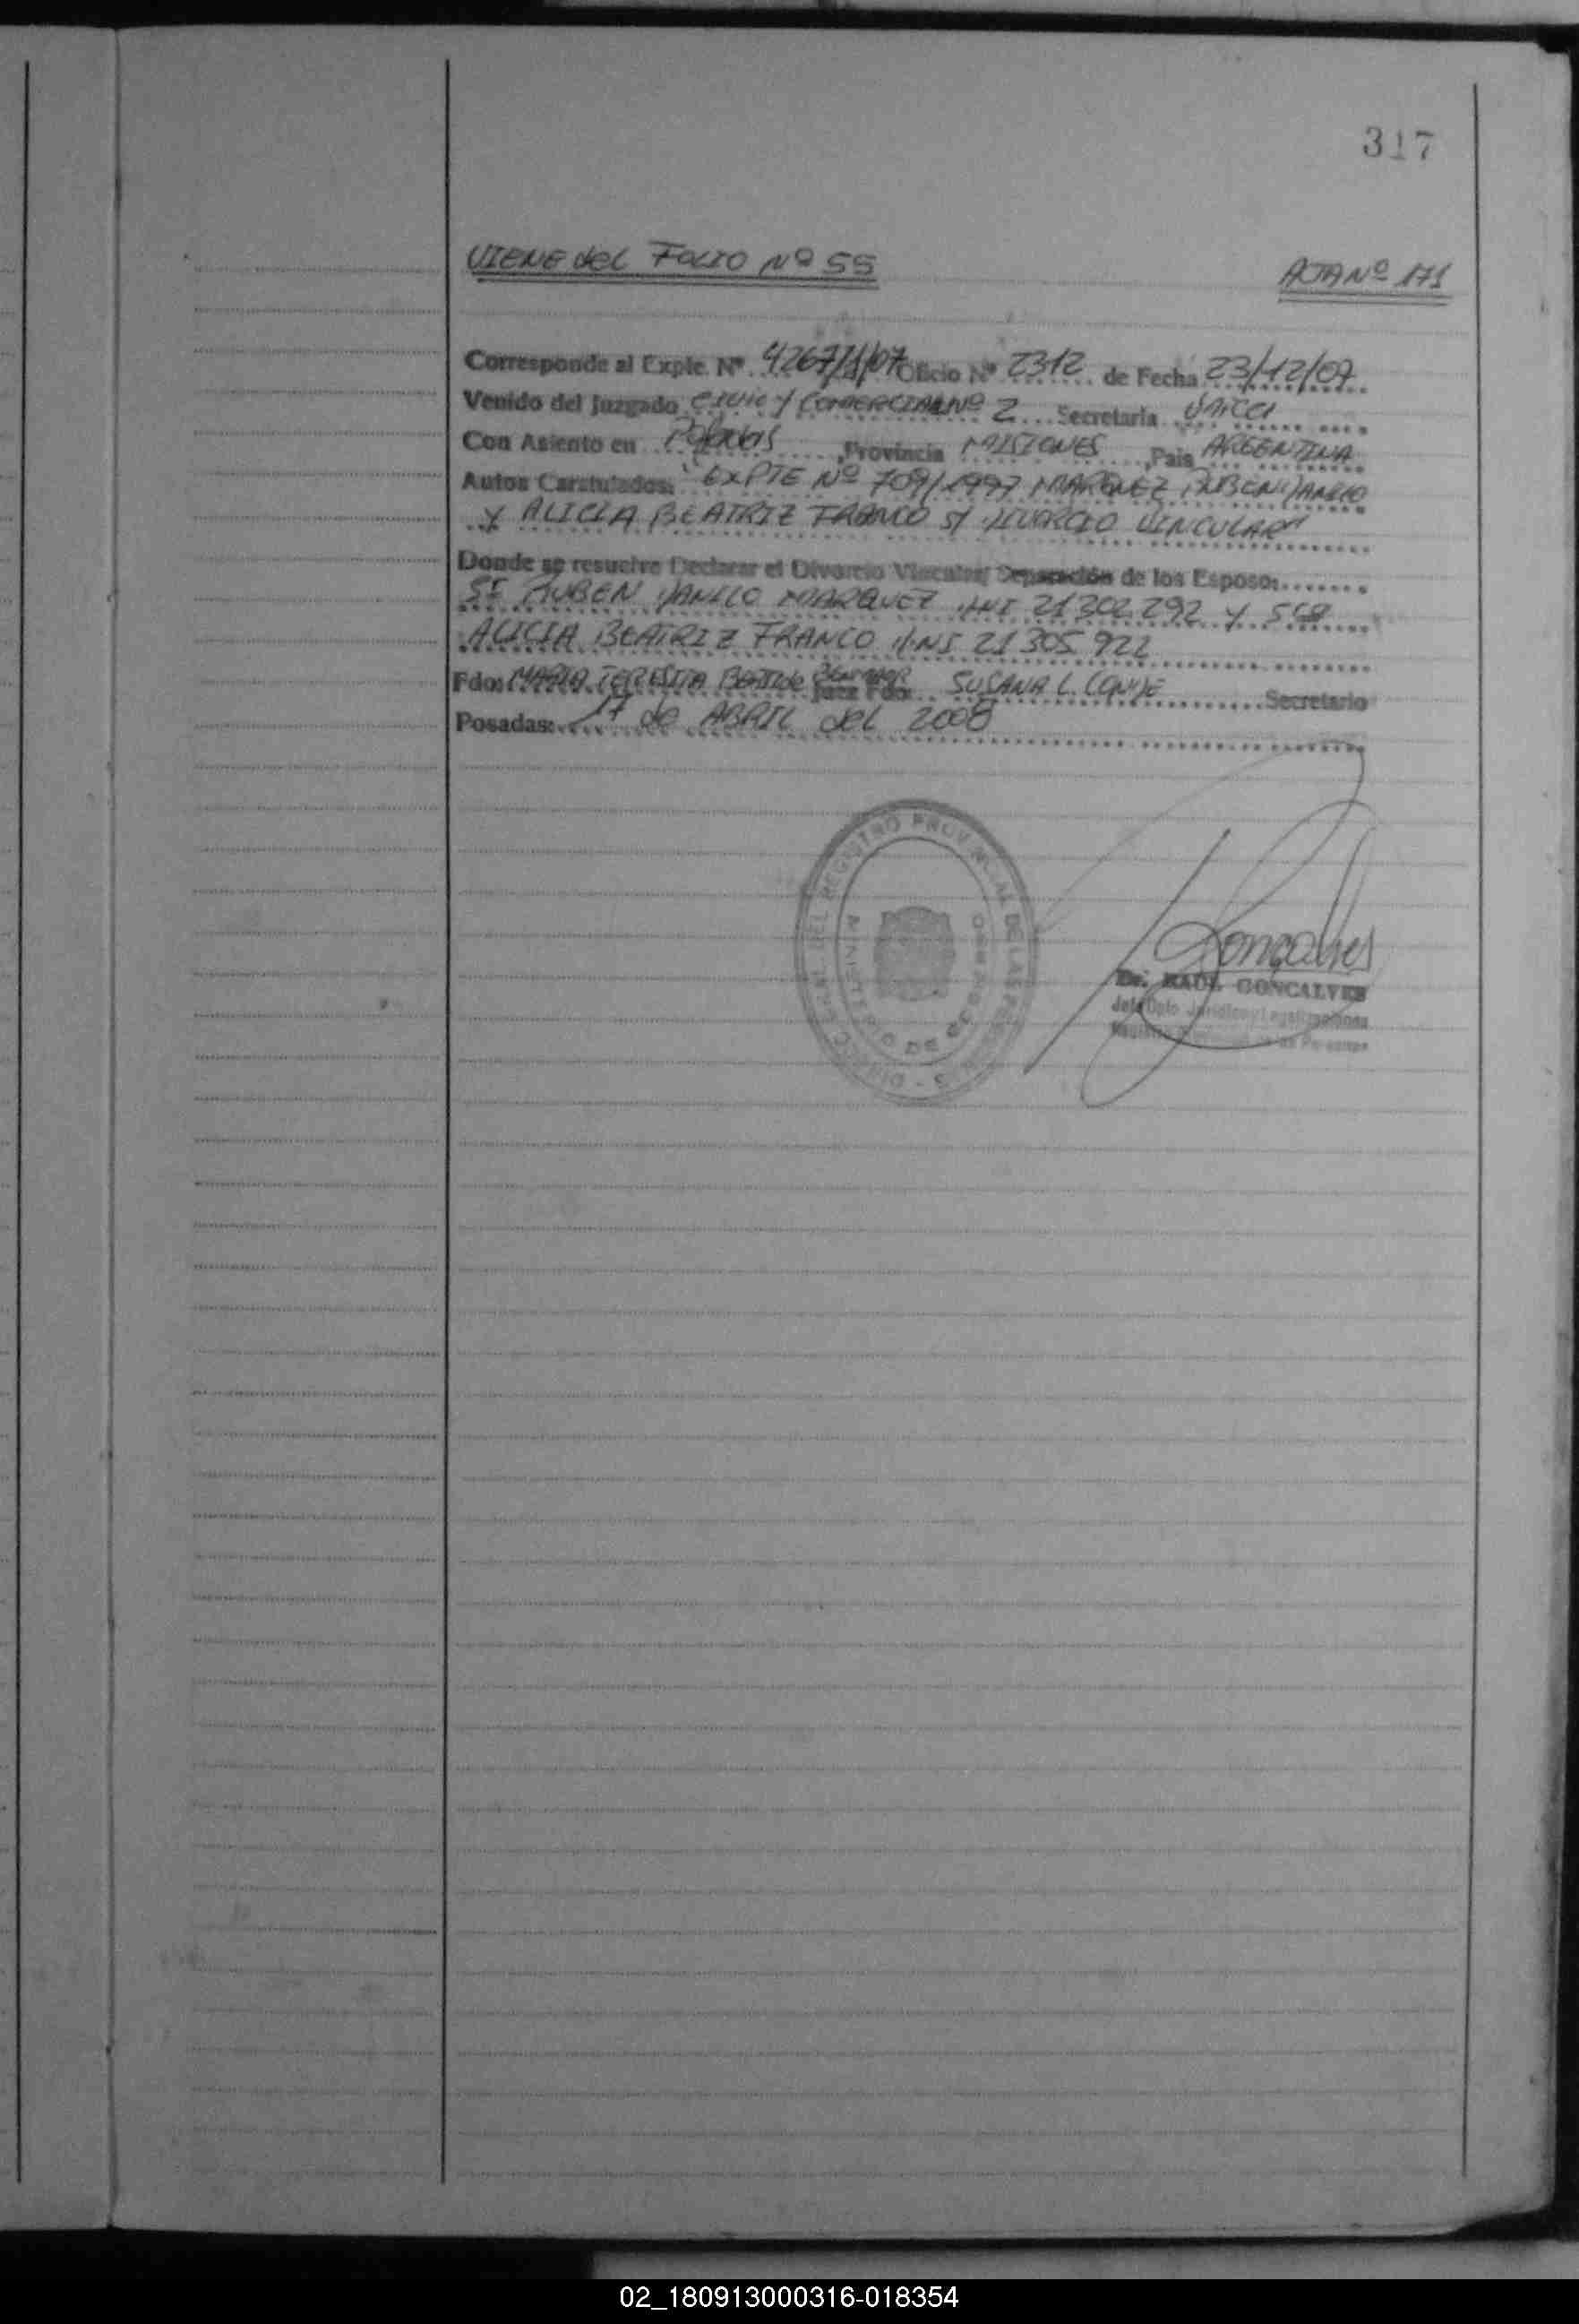 317
VIENE del FOLIO Nº 55
ACTA Nº 171
Corresponde al Expte. Nº 4267/1/07 Oficio Nº 2312 de Fecha 23/12/07
Venido del Juzgado CIVIL Y COMERCIAL Nº 2 Secretaria UNICA
Con Asiento en Posadas, Provincia MISIONES, Pais ARGENTINA
Autos Caratulados: "EXPTE Nº 709/1997 MARQUEZ RUBEN DANILO
Y ALICIA BEATRIZ FRANCO S/ DIVORCIO VINCULAR"
Donde se resuelve Declarar el Divorcio Vincular Separación de los Esposos
RUBEN DANILO MARQUEZ DNI 21302292 Y
ALICIA BEATRIZ FRANCO DNI 21305922
Fdo: MARIA TERESITA Juez Fdo: SUSANA L. CONDE Secretario
Posadas: 17 de ABRIL del 2008
DIRECC GENERAL DEL REGISTRO PROVINCIAL DE LAS PERSONAS
MINISTERIO DE GOBIERNO
Dr. RAUL GONCALVES
Jefe Dpto Juridico y Legalizaciones
Registro Provincial de las Personas
02_180913000316-018354